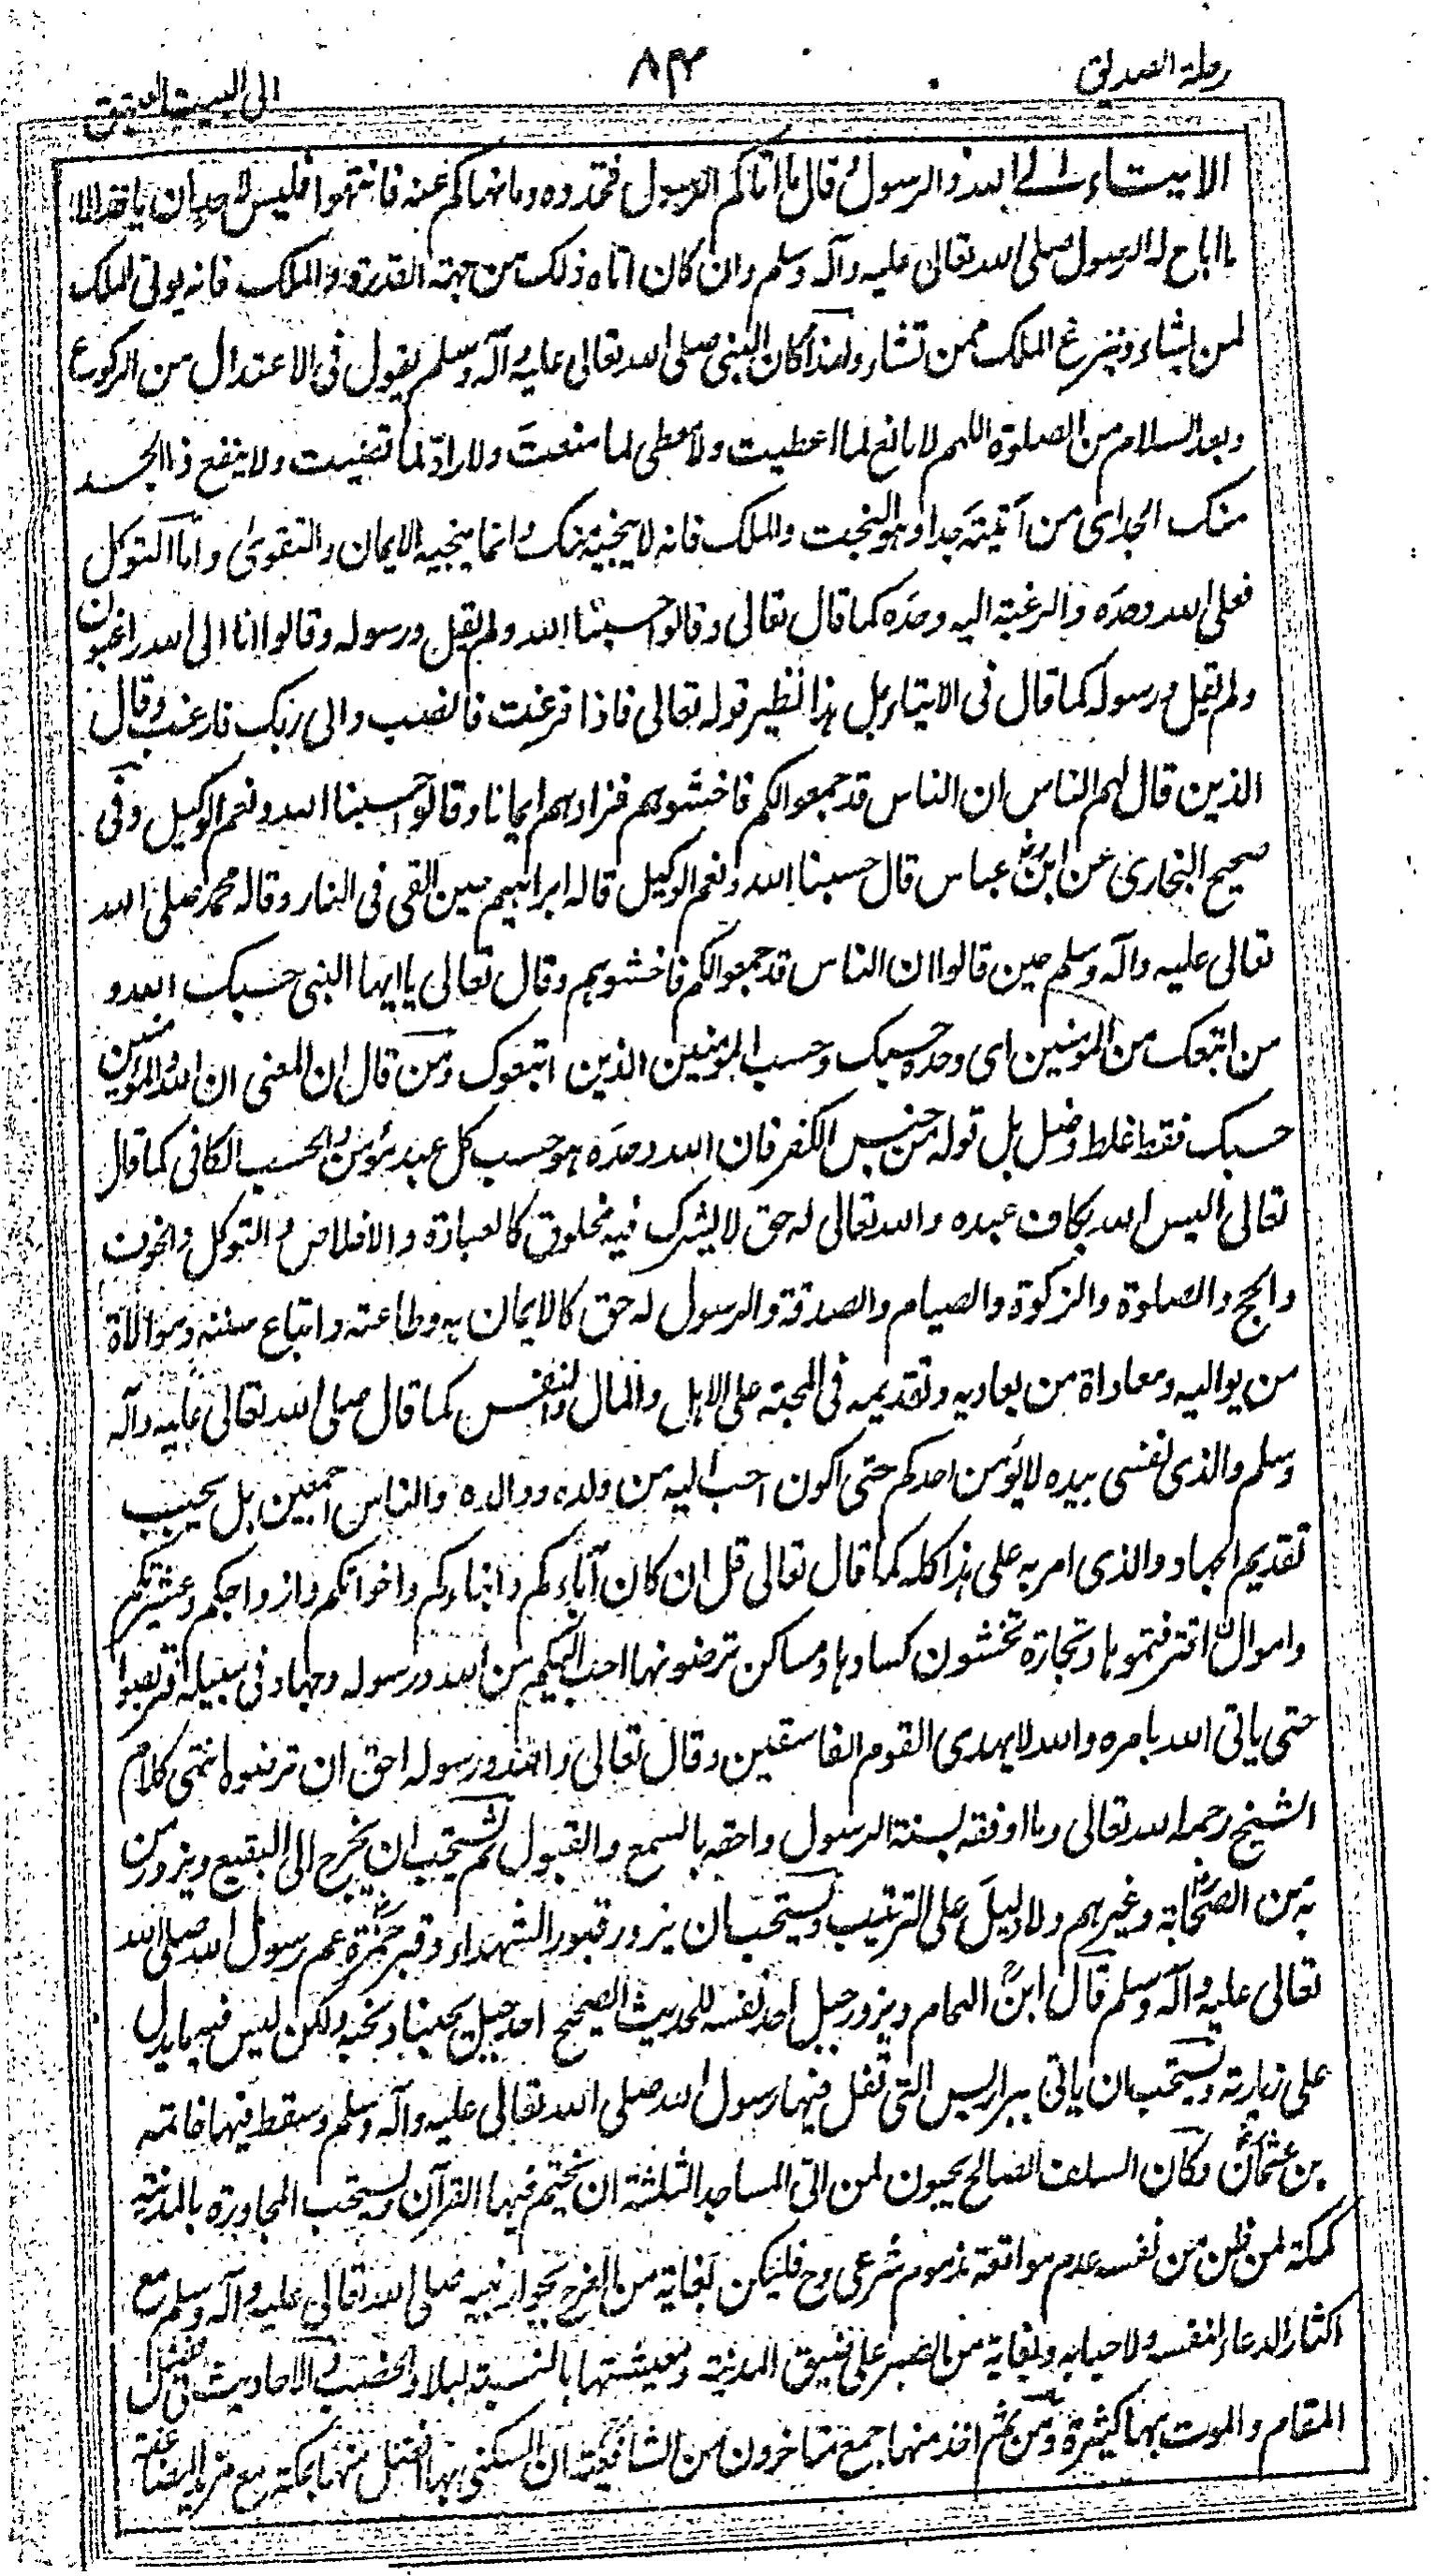 رحلة الصديق
٨٣
الى البيت العتيق
الايتاء الى الله والرسول قال ما اتاكم الرسول فخذوه وما نهاكم عنه فانتهوا فليس لاحد ان ياخذ الا
ما اباح له الرسول صلى الله تعالى عليه وآله وسلم وان كان اتاه ذلك من جهة القدرة والملك فانه يوتى الملك
لمن يشاء وينزع الملك ممن تشاء ولهذا كان النبى صلى الله تعالى عليه وآله وسلم يقول فى الاعتدال من الركوع
وبعد السلام من الصلوة اللهم لا مانع لما اعطيت ولا معطى لما منعت ولا رادّ لما قضيت ولا ينفع ذا الجد
منك الجد اى من آتيته جدا وهو البخت والملك فانه لا ينجيه منك وانما ينجيه الايمان والتقوى واما التوكل
فعلى الله وحده والرغبة اليه وحده كما قال تعالى وقالوا حسبنا الله ولم يقل ورسوله وقالوا انا الى الله راغبون
ولم يقل ورسوله كما قال فى الايتاء بل هذا نظير قوله تعالى فاذا فرغت فانصب والى ربك فارغب وقال
الذين قال لهم الناس ان الناس قد جمعوا لكم فاخشوهم فزادهم ايمانا وقالوا حسبنا الله ونعم الوكيل وفى
صحيح البخارى عن ابن عباس قال حسبنا الله ونعم الوكيل قاله ابراهيم حين القى فى النار وقاله محمد صلى الله
تعالى عليه وآله وسلم حين قالوا ان الناس قد جمعوا لكم فاخشوهم وقال تعالى يا ايها النبى حسبك الله و
من اتبعك من المومنين اى وحده حسبك وحسب المومنين الذين اتبعوك ومن قال ان المعنى ان الله والمومنين
حسبك فقط غلط وضل بل قوله من جنس الكفر فان الله وحده هو حسب كل عبد مؤمن والحسب الكافى كما قال
تعالى اليس الله بكاف عبده والله تعالى له حق لا يشرك فيه مخلوق كالعبادة والاخلاص والتوكل والخوف
والحج والصلوة والزكوة والصيام والصدقة والرسول له حق كالايمان به وطاعته واتباع سنته وموالاة
من يواليه ومعاداة من يعاديه وتقديمه فى المحبة على الاهل والمال والنفس كما قال صلى الله تعالى عليه وآله
وسلم والذى نفسى بيده لا يؤمن احدكم حتى اكون احب اليه من ولده ووالده والناس اجمعين بل يجب
تقديم الجهاد والذى امر به على هذا كله كما قال تعالى قل ان كان آباءكم وابناءكم واخوانكم وازواجكم وعشيرتكم
واموال ن اقترفتموها وتجارة تخشون كسادها ومساكن ترضونها احب اليكم من الله ورسوله وجهاد فى سبيله فتربصوا
حتى ياتى الله بامره والله لا يهدى القوم الفاسقين وقال تعالى والله ورسوله احق ان ترضوه انتهى كلام
الشيخ رحمه الله تعالى وما اوفقه لسنة الرسول واحقه بالسمع والقبول ثم يستحب ان يخرج الى البقيع ويزور من
به من الصحابة وغيرهم ولا دليل على الترتيب ويستحب ان يزور قبور الشهداء وقبر حمزة عم رسول الله صلى الله
تعالى عليه وآله وسلم قال ابن الهمام ويزور جبل احد نفسه للحديث الصحيح احد جبل يحبنا ونحبه ولكن ليس فيه ما يدل
على زيارته ويستحب ان ياتى بير اريس التى تفل فيها رسول الله صلى الله تعالى عليه وآله وسلم وسقط فيها خاتمه
من عثمان وكان السلف الصالح يحبون لمن اتى المساجد الثلثة ان يختم فيها القرآن ويستحب المجاورة بالمدينة
كمكة لمن ظن من نفسه عدم مواقعة مذموم شرعى وح فليكن بغاية من الفرح بجوار نبيه صلى الله تعالى عليه وآله وسلم مع
اكثار الدعاء لنفسه ولاحبابه وبغاية من الصبر على ضيق المدينة ومعيشتها بالنسبة لبلاد الخصب والاحاديث فى فضل
المقام والموت بها كثيرة ومن ثم اخذ منها جمع متاخرون من الشافعية ان السكنى بها افضل منها بمكة مع مزيد المضاعفة